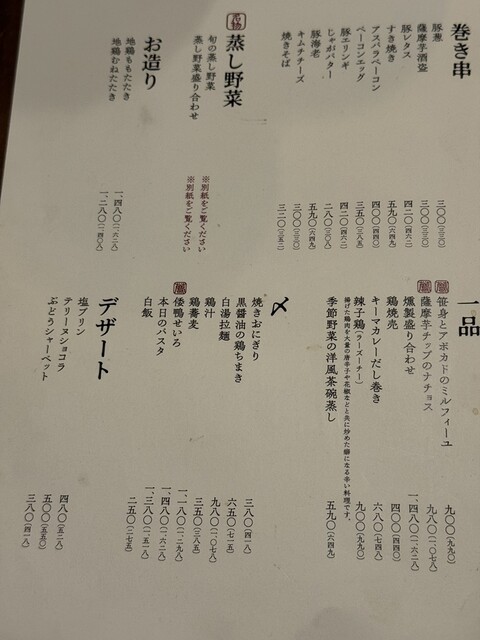 巻き串
豚葱 三〇〇(三三〇)
薩摩芋酒盗 三〇〇(三三〇)
豚レタス 四二〇(四六二)
すき焼き 五九〇(六四九)
アスパラベーコン 四〇〇(四四〇)
ベーコンエッグ 三五〇(三八五)
豚エリンギ 四二〇(四六二)
じゃがバター 二八〇(三〇八)
豚海老 五九〇(六四九)
キムチチーズ 三〇〇(三三〇)
焼きそば 三二〇(三五二)
名物 蒸し野菜
旬の蒸し野菜 ※別紙をご覧ください
蒸し野菜盛り合わせ ※別紙をご覧ください
お造り
地鶏ももたたき 一、四八〇(一、六二八)
地鶏むねたたき 一、二八〇(一、四〇八)
一品
笹身とアボカドのミルフィーユ 九〇〇(九九〇)
薩摩芋チップのナチョス 九八〇(一、〇七八)
燻製盛り合わせ 一、四八〇(一、六二八)
鶏焼売 四〇〇(四四〇)
キーマカレーだし巻き 六八〇(七四八)
辣子鶏(ラーズーチー) 九〇〇(九九〇)
揚げた鶏肉を大量の唐辛子や花椒などと共に炒めた癖になる辛い料理です。
季節野菜の洋風茶碗蒸し 五九〇(六四九)
〆
焼きおにぎり 三八〇(四一八)
黒醤油の鶏ちまき 六五〇(七一五)
白湯拉麺 九八〇(一、〇七八)
鶏汁 三五〇(三八五)
鶏蕎麦 一、一八〇(一、二九八)
倭鴨せいろ 一、四八〇(一、六二八)
本日のパスタ 一、三八〇(一、五一八)
白飯 二五〇(二七五)
デザート
塩プリン 四八〇(五二八)
テリーヌショコラ 五〇〇(五五〇)
ぶどうシャーベット 三八〇(四一八)